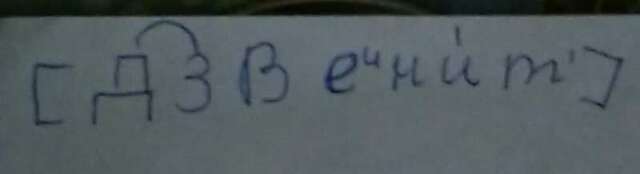 [Д͡З В еᶦн и́ т']